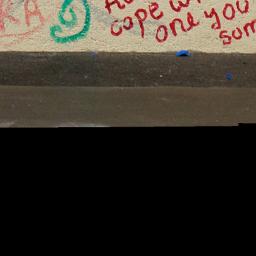 KA
cope w
one you
som